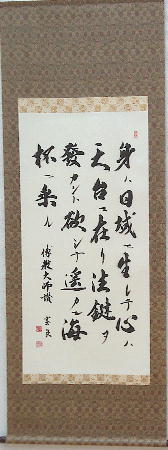 身ハ日域ニ生シテ心ハ
天台ニ在リ法鍵ヲ
發カント欲シテ遥カニ海
杯ニ乗ル
傳教大師讃